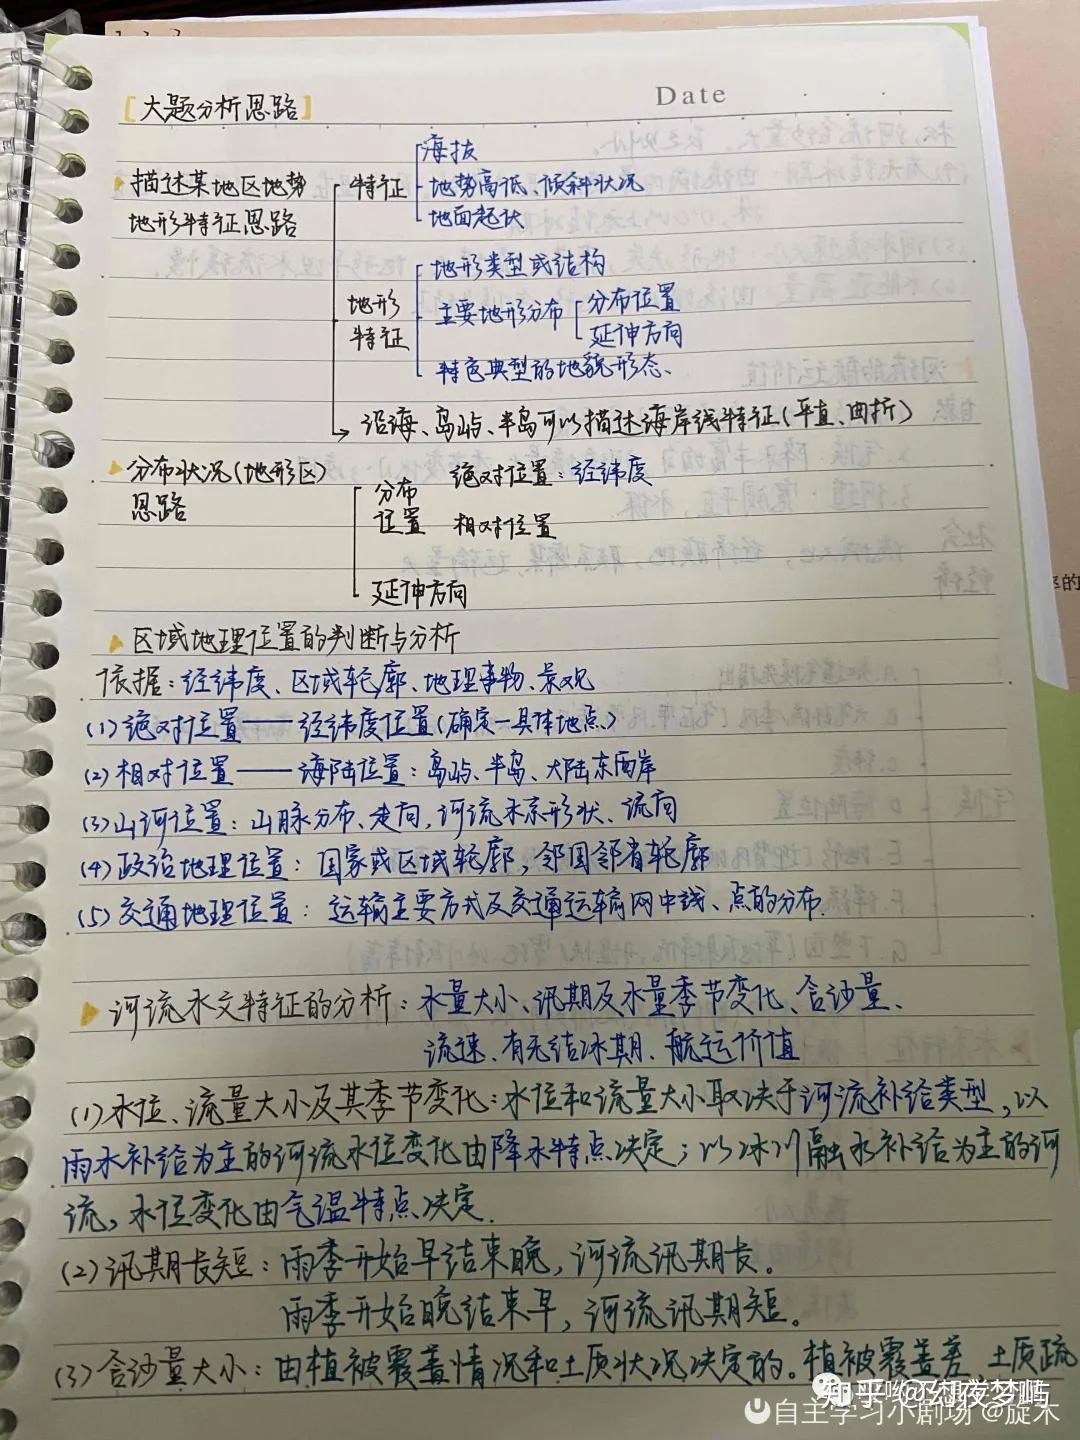 Date
[大题分析思路]
描述某地区地势
地形特征思路
特征
海拔
地势高低、倾斜状况
地面起伏
地形
特征
地形类型或结构
主要地形分布
分布位置
延伸方向
特色典型的地貌形态、
沿海、岛屿、半岛可以描述海岸线特征(平直、曲折)
分布状况(地形区)
思路
分布
位置
绝对位置:经纬度
相对位置
延伸方向
区域地理位置的判断与分析
依据:经纬度、区域轮廓、地理事物、景观
(1)绝对位置——经纬度位置(确定一具体地点)
(2)相对位置——海陆位置:岛屿、半岛、大陆东西岸
(3)山河位置:山脉分布、走向,河流水系形状、流向
(4)政治地理位置:国家或区域轮廓,邻国邻省轮廓
(5)交通地理位置:运输主要方式及交通运输网中线、点的分布.
河流水文特征的分析:水量大小、汛期及水量季节变化、含沙量、
流速、有无结冰期、航运价值
(1)水位、流量大小及其季节变化:水位和流量大小取决于河流补给类型,以
雨水补给为主的河流水位变化由降水特点决定;以冰川融水补给为主的河
流,水位变化由气温特点决定.
(2)汛期长短:雨季开始早结束晚,河流汛期长。
雨季开始晚结束早,河流汛期短。
(3)含沙量大小:由植被覆盖情况和土质状况决定的。植被覆盖差 土质疏
率的
知乎 @幻夜梦屿
自主学习小剧场 @旋木